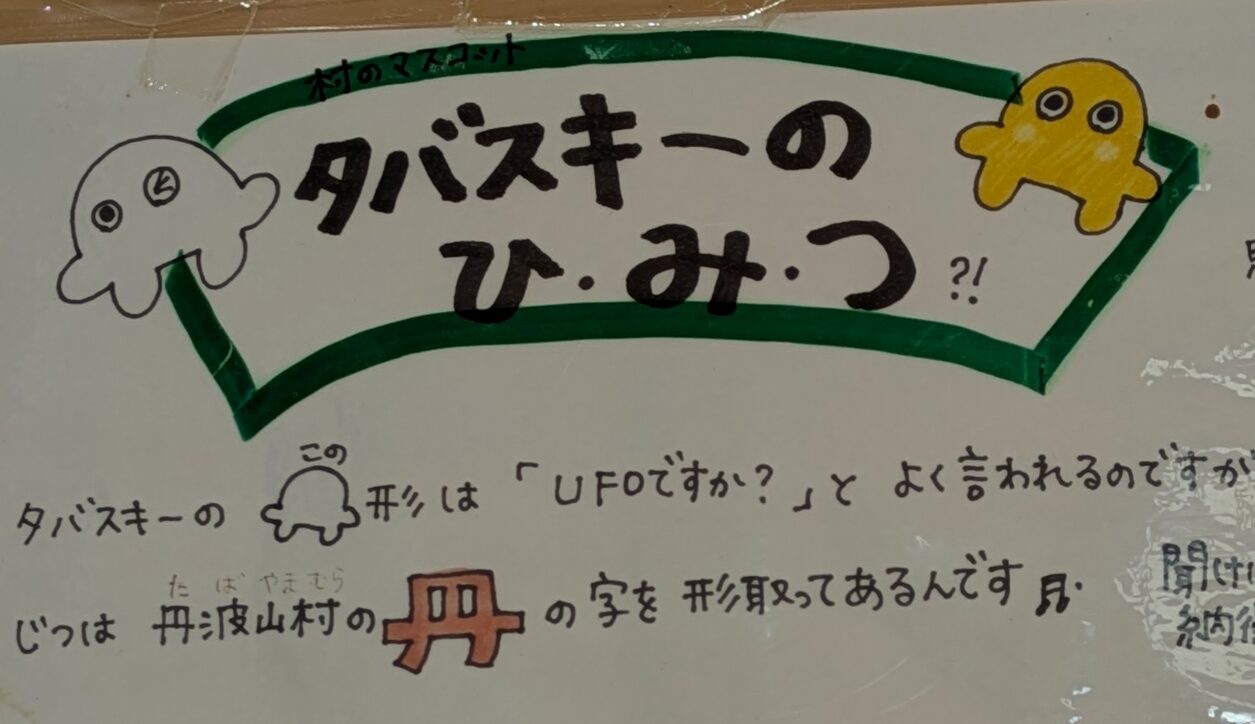 村のマスコット
タバスキーの
ひ・み・つ?!
この
タバスキーの 形は 「UFOですか?」と よく言われるのですが
たばやまむら
じつは 丹波山村の丹の字を形取ってあるんです♬
聞け
納